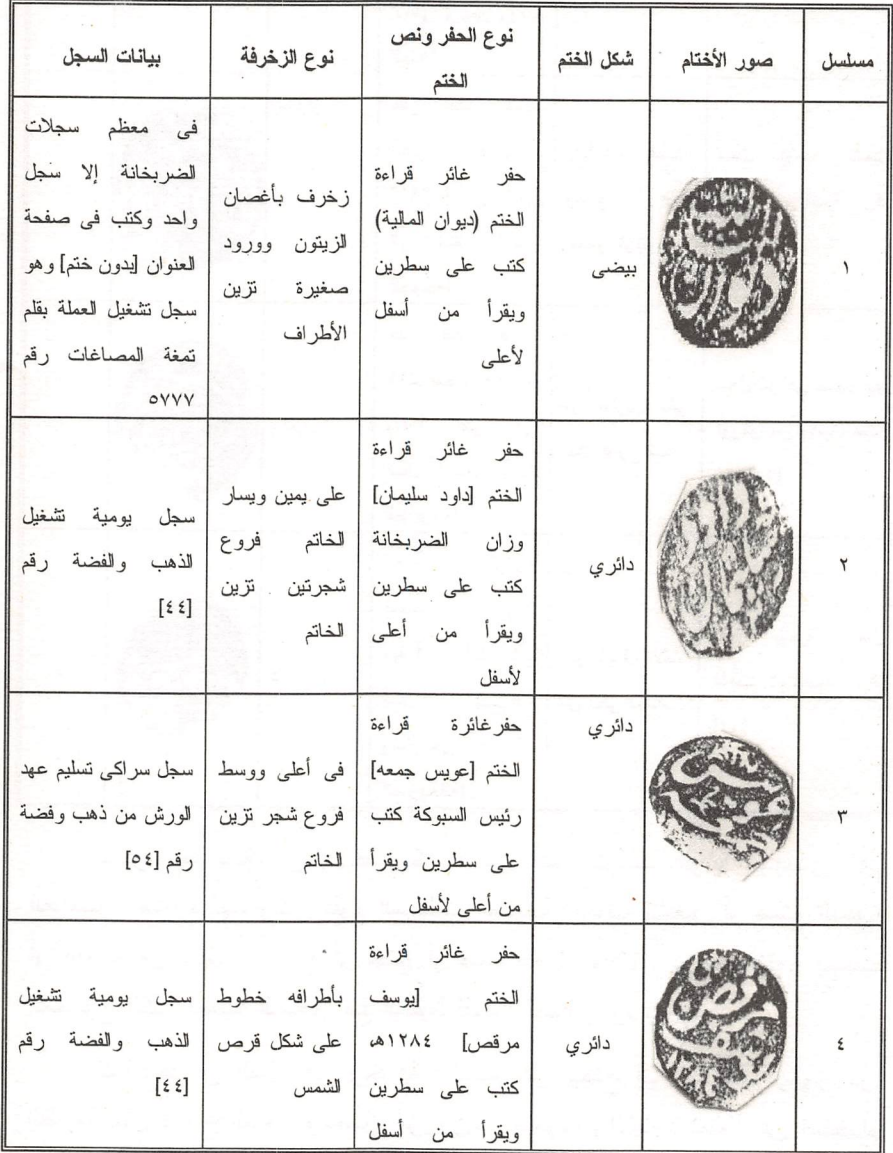 مسلسل
صور الأختام
شكل الختم
نوع الحفر ونص
الختم
نوع الزخرفة
بيانات السجل
١
بيضى
حفر غائر قراءة
الختم (ديوان المالية)
كتب على سطرين
ويقرأ من أسفل
لأعلى
زخرف بأغصان
الزيتون وورود
صغيرة تزين
الأطراف
فى معظم سجلات
الضربخانة إلا سجل
واحد وكتب فى صفحة
العنوان [بدون ختم] وهو
سجل تشغيل العملة بقلم
تمغة المصاغات رقم
٥٧٧٧
٢
دائري
حفر غائر قراءة
الختم [داود سليمان]
وزان الضربخانة
كتب على سطرين
ويقرأ من أعلى
لأسفل
على يمين ويسار
الخاتم فروع
شجرتين تزين
الخاتم
سجل يومية تشغيل
الذهب والفضة رقم
[٤٤]
٣
دائري
حفرغائرة قراءة
الختم [عويس جمعه]
رئيس السبوكة كتب
على سطرين ويقرأ
من أعلى لأسفل
فى أعلى ووسط
فروع شجر تزين
الخاتم
سجل سراكى تسليم عهد
الورش من ذهب وفضة
رقم [٥٤]
٤
دائري
حفر غائر قراءة
الختم [يوسف
مرقص] ١٢٨٤هـ
كتب على سطرين
ويقرأ من أسفل
بأطرافه خطوط
على شكل قرص
الشمس
سجل يومية تشغيل
الذهب والفضة رقم
[٤٤]